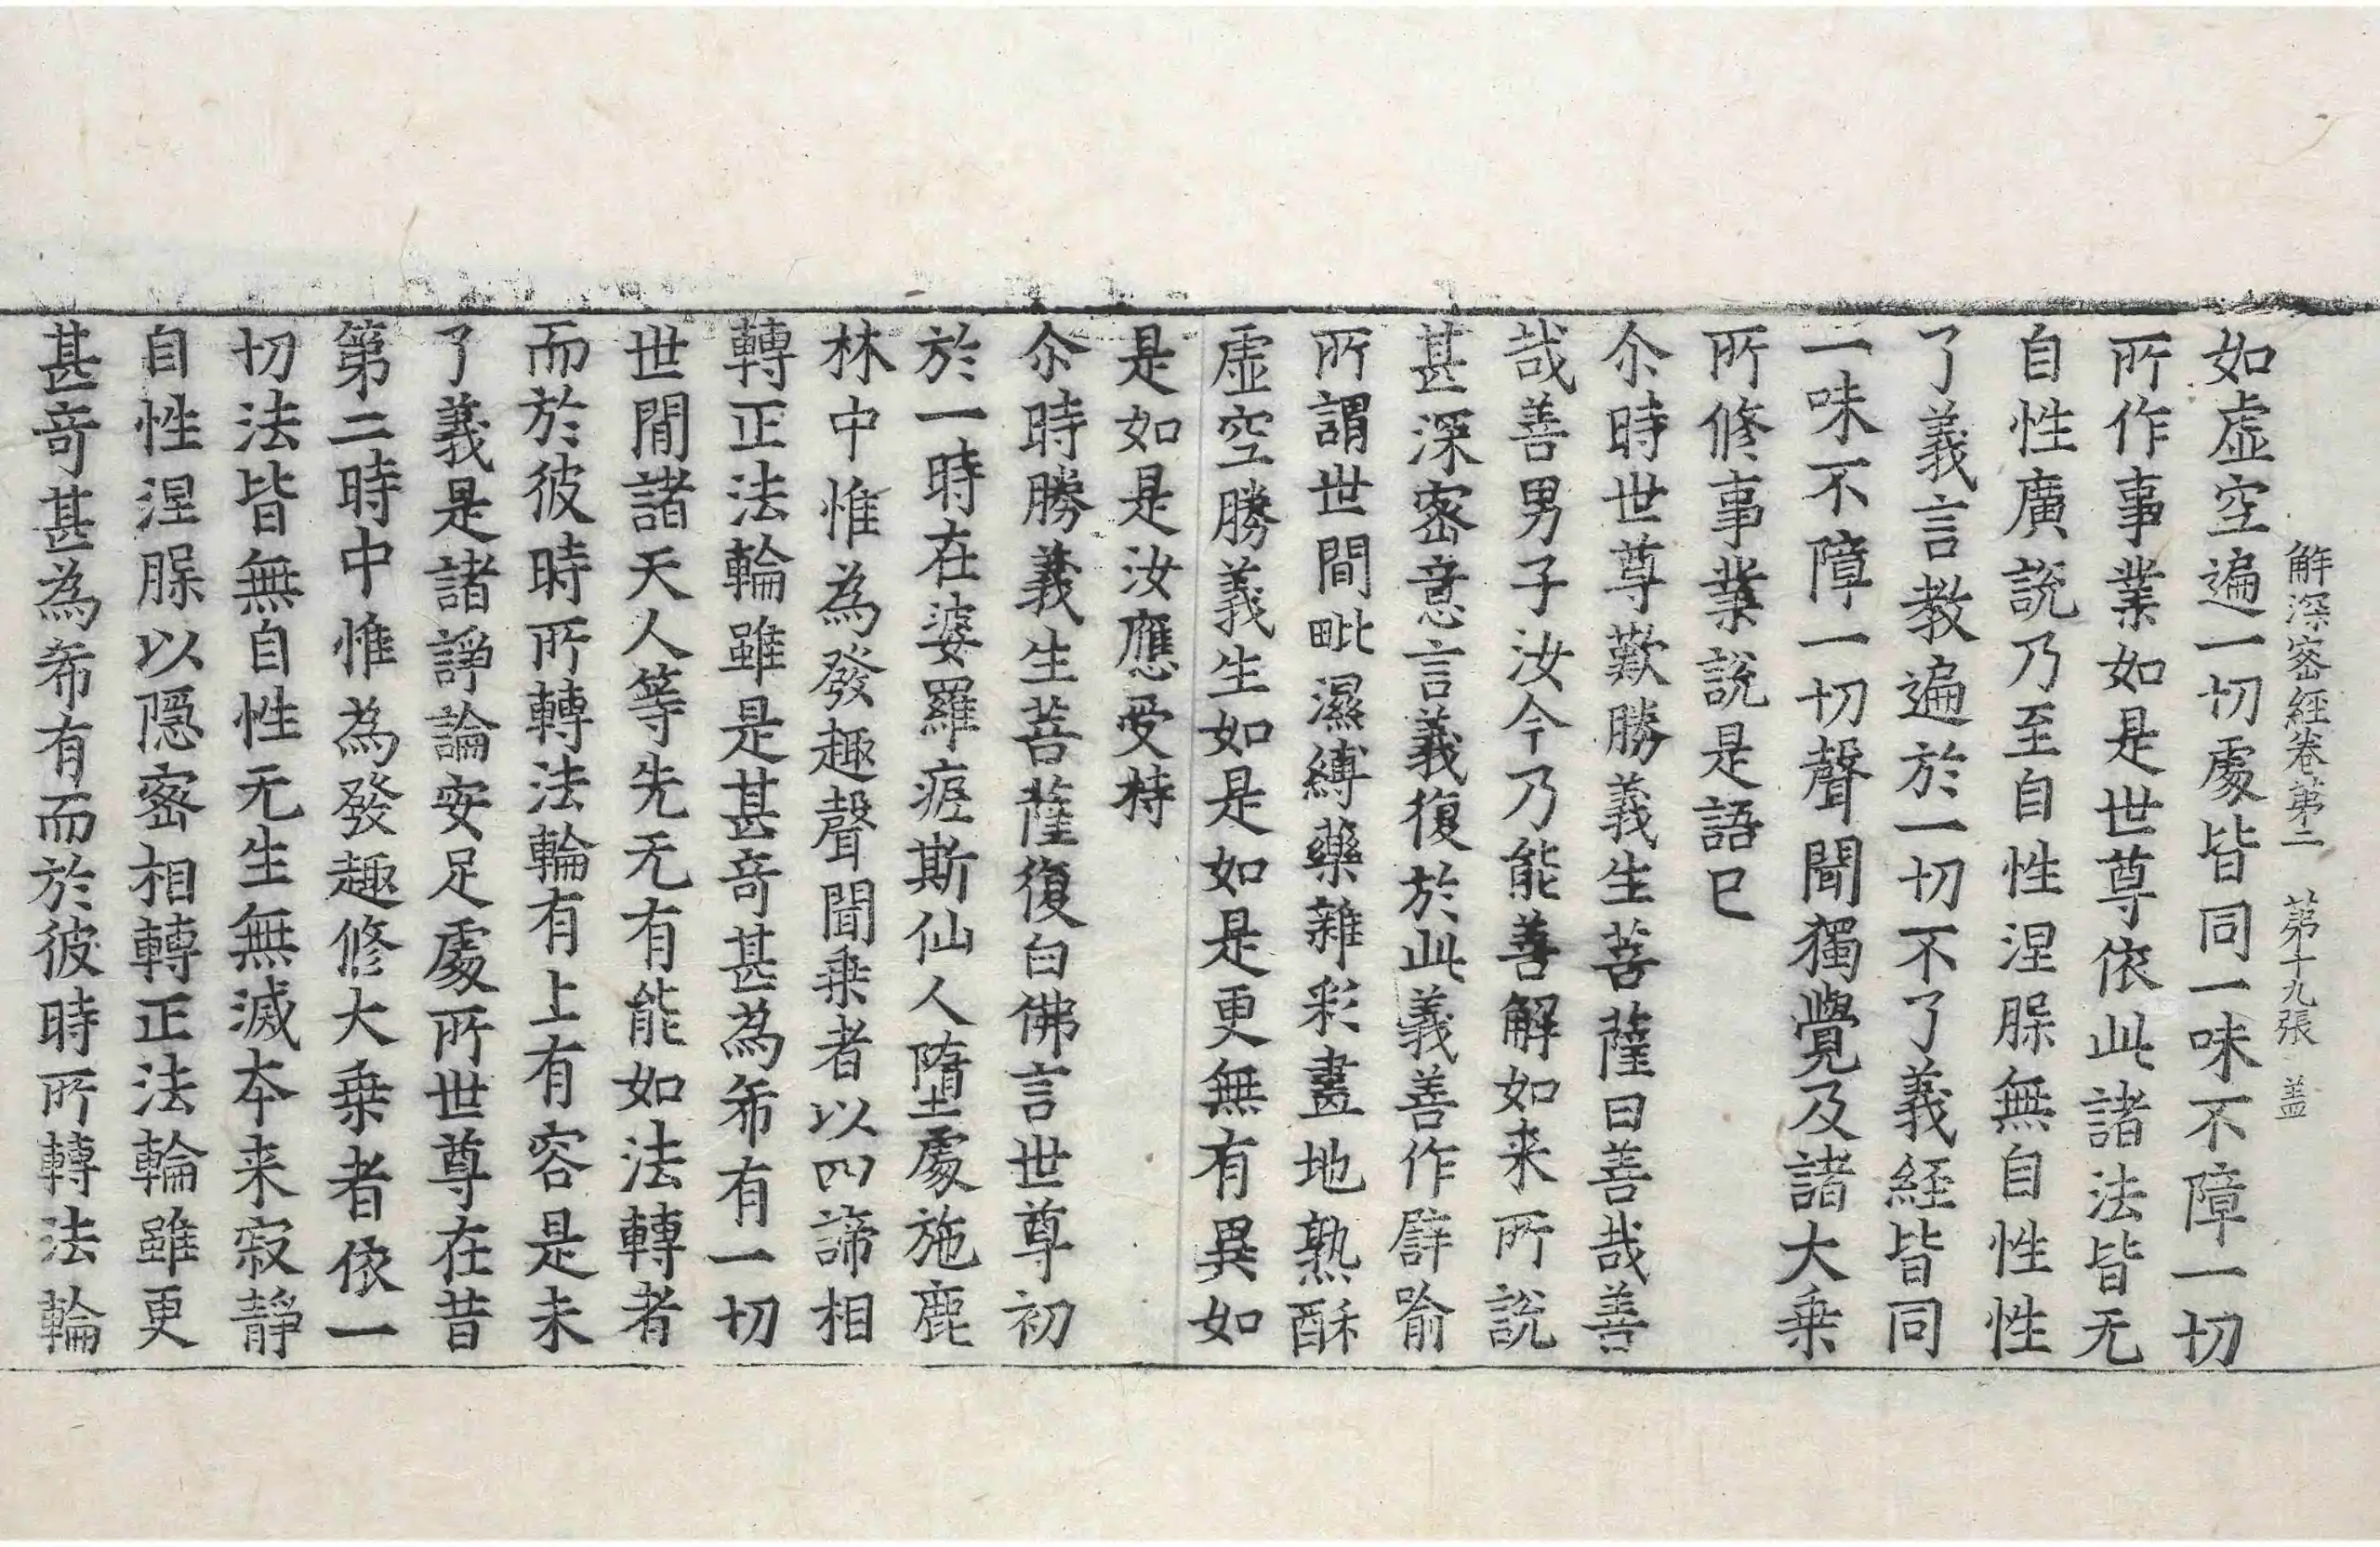 解深密經卷第二 第十九張 盖
如虛空遍一切處皆同一味不障一切
所作事業如是世尊依此諸法皆无
自性廣說乃至自性涅槃無自性性
了義言教遍於一切不了義經皆同
一味不障一切聲聞獨覺及諸大乘
所修事業說是語已
尒時世尊歎勝義生菩薩曰善哉善
哉善男子汝今乃能善解如来所說
甚深密意言義復於此義善作譬喻
所謂世間毗濕縛藥雜彩畫地熟酥
虛空勝義生如是如是更無有異如
是如是汝應受持
尒時勝義生菩薩復白佛言世尊初
於一時在婆羅痆斯仙人墮處施鹿
林中惟為發趣聲聞乘者以四諦相
轉正法輪雖是甚竒甚為希有一切
世間諸天人等先无有能如法轉者
而於彼時所轉法輪有上有容是未
了義是諸諍論安足處所世尊在昔
第二時中惟為發趣修大乘者依一
切法皆無自性无生無滅本来寂靜
自性涅槃以隱密相轉正法輪雖更
甚竒甚為希有而於彼時所轉法輪